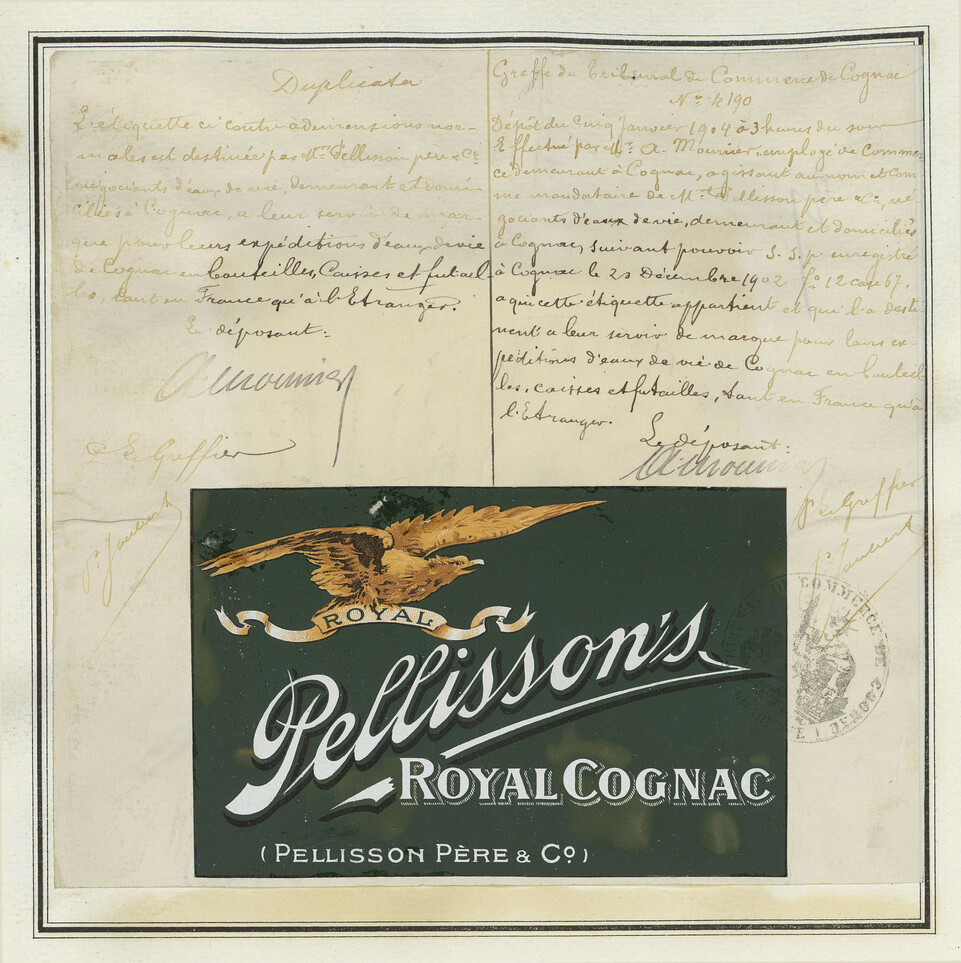 Duplicata
L'étiquette ci contre à dimensions nor-
males est destinée par Mrs Pellisson père & Cie
négociants d'eaux de vie, demeurant et domi-
ciliés à Cognac, a leur servir de mar-
que pour leurs expéditions d'eaux de vie
de Cognac en bouteilles, Caisses et futail
les, tant en France qu'à l'Etranger.
Le déposant:
A. Mounier
P. Le Greffier
P. Joubert
Greffe du Tribunal de Commerce de Cognac
No. 4190
Dépôt du Cinq Janvier 1904 à 3 heures du soir
Effectué par Mr. A. Mounier, employé de Commer-
ce demeurant à Cognac, agissant au nom et com
me mandataire de Mrs Pellisson père & Cie, né
gociants d'eaux de vie, demeurant et domiciliés
à Cognac, suivant pouvoir S. S. p. enregistré
à Cognac le 23 Décembre 1902 fo. 12 case 67,
a qui cette étiquette appartient et qui l'a desti
nent a leur servir de marque pour leurs ex-
péditions d'eaux de vie de Cognac en bouteil
les, caisses et futailles, tant en France qu'à
l'Etranger.
Le déposant:
A. Mounier
P. Le Greffier
P. Joubert
ROYAL
Pellisson's
ROYAL COGNAC
(PELLISSON PÈRE & Co)
DE COMMERCE DE COGNAC